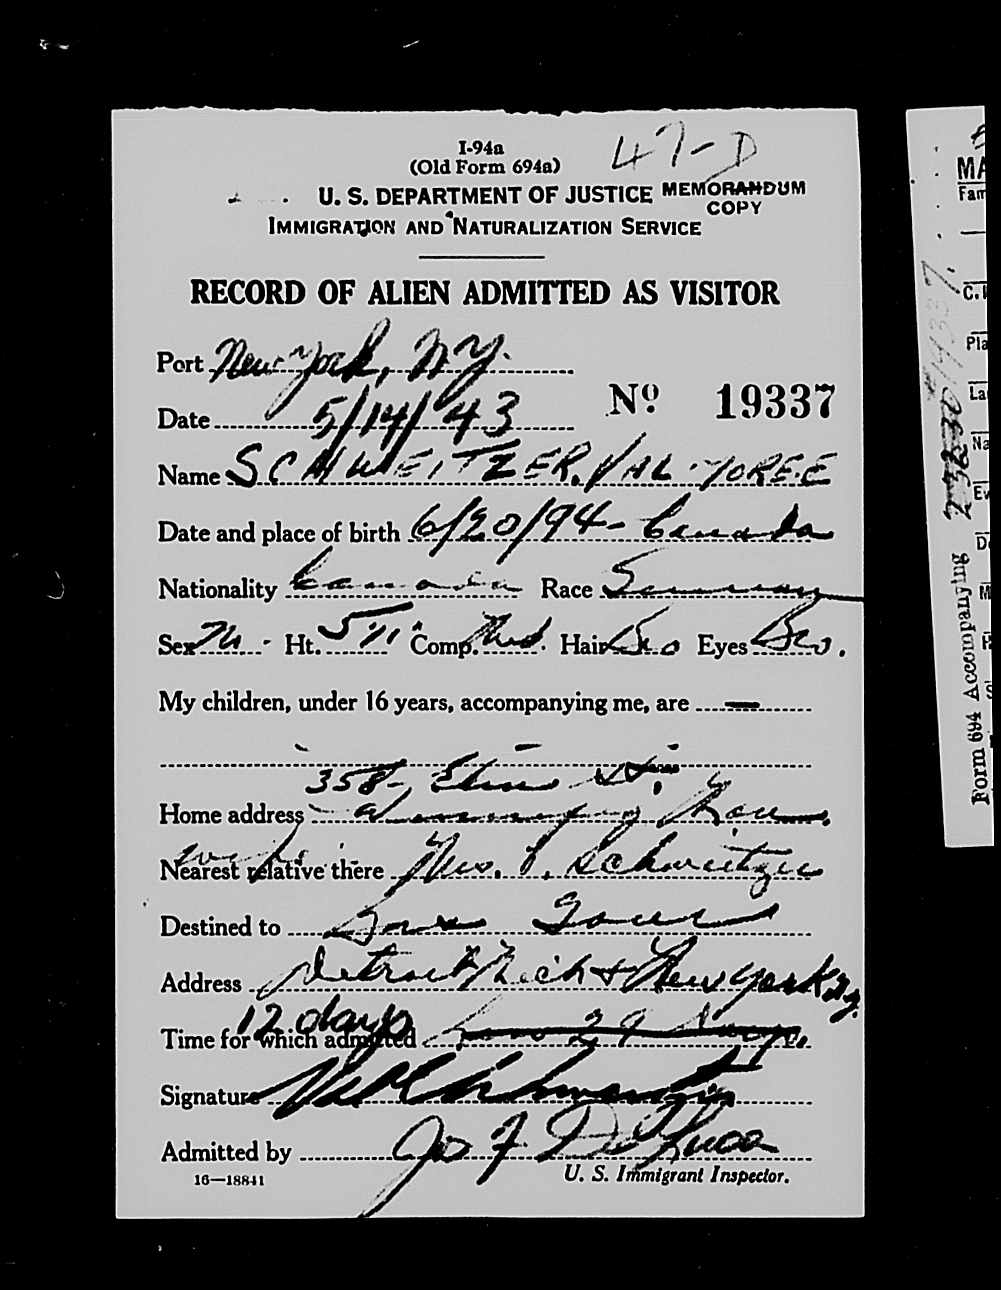 I-94a
(Old Form 694a) 47-D
U. S. DEPARTMENT OF JUSTICE MEMORANDUM COPY
IMMIGRATION AND NATURALIZATION SERVICE
RECORD OF ALIEN ADMITTED AS VISITOR
Port New York, NY.
Nº 19337
Date 5/14/43
Name SCHWEITZER, VAL
Date and place of birth 6/20/94 - Canada
Nationality Canada Race German
Sex M. Ht. 5'11" Comp. Med. Hair Bro Eyes Bro.
My children, under 16 years, accompanying me, are —
358 - Elm St.
Home address Winnipeg Man.
wife
Nearest relative there Mrs. V. Schweitzer
Destined to
Address Detroit Mich + New York Ny.
12 days
Time for which admitted 29 days.
Signature
Admitted by Jo F De Luca
16—18841 U. S. Immigrant Inspector.
MA
Fam
C.
Pla
La
Na
Ev
D
M
19337
Form 694 Accompanying